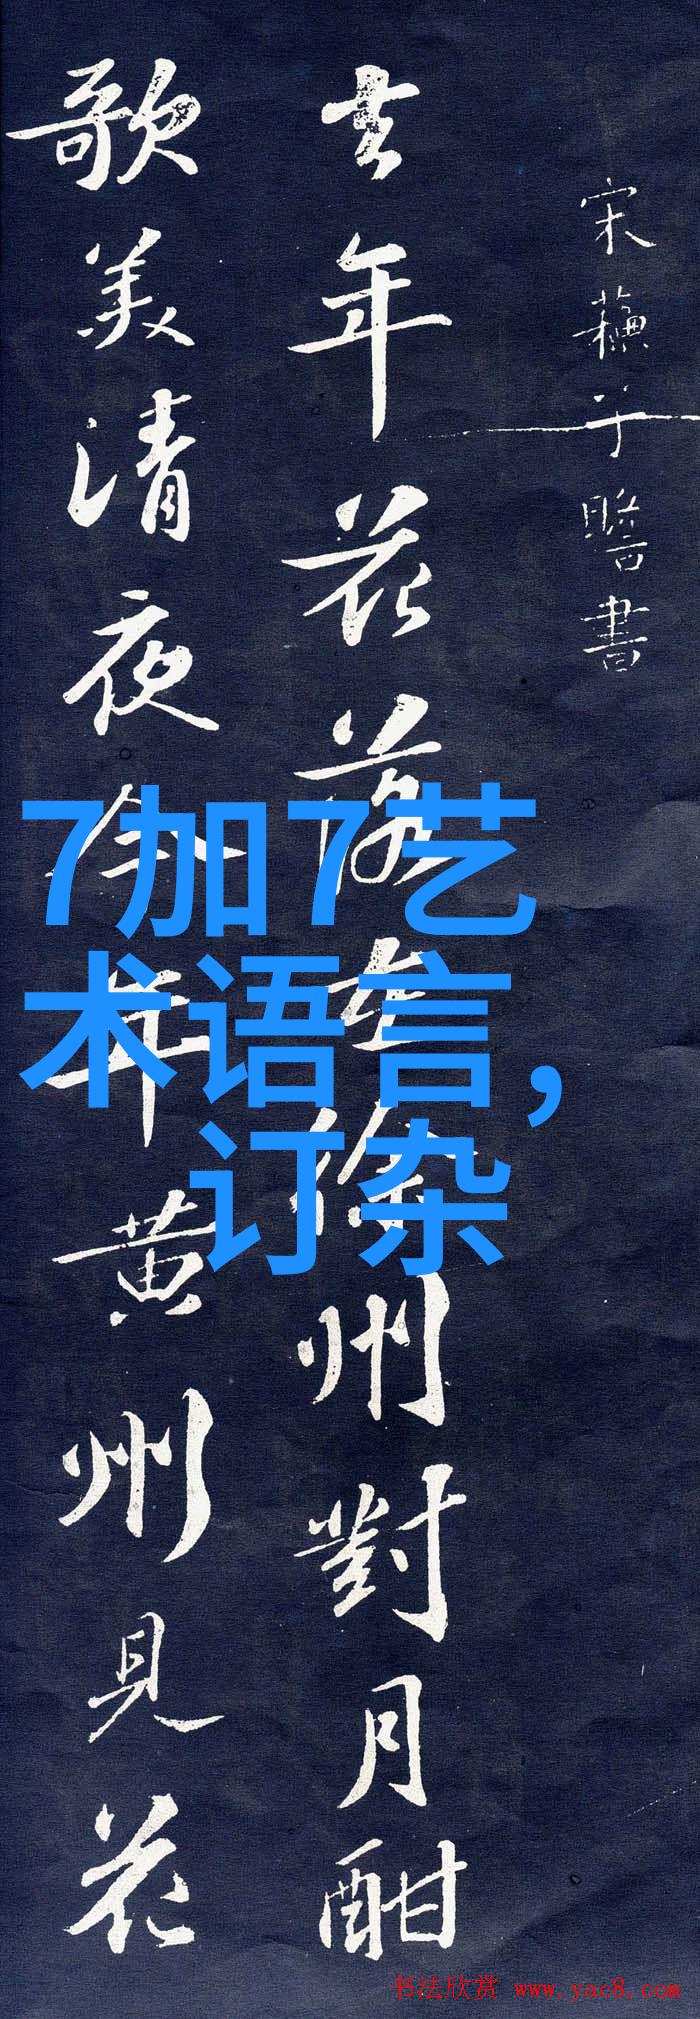 宋蘓子瞻書
去年花落在徐州對月酣
歌美清夜今年黄州見花
7加7艺
术语言，
订杂
书法欣赏 www.yac8.com